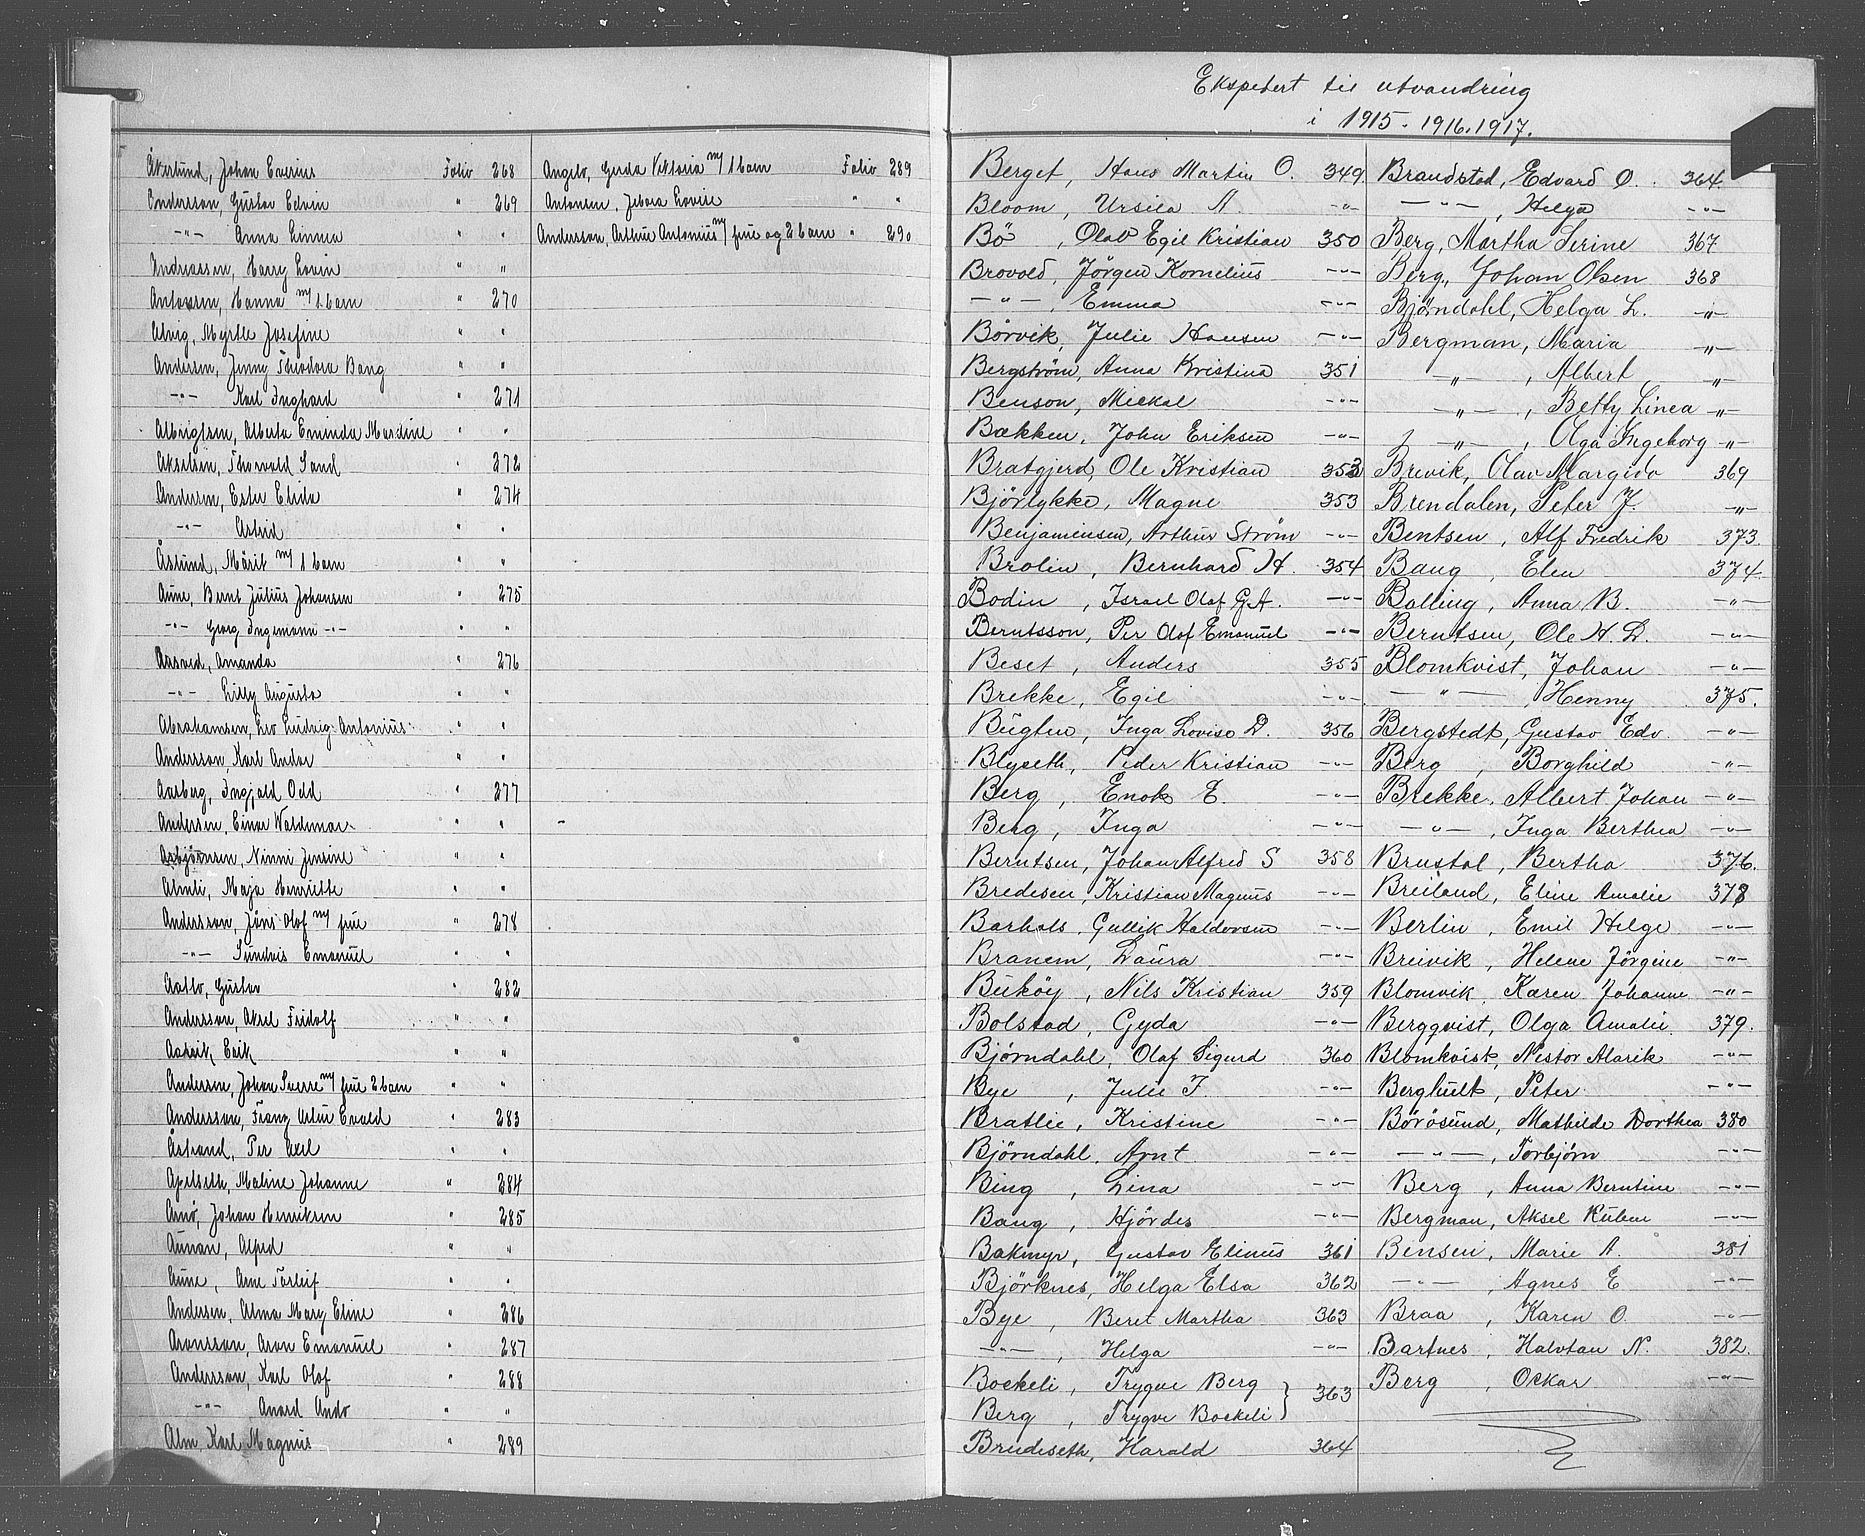 Åkerlund, Johan Everius Folio 268
Andersson, Gustav Edvin " 269
-"- Anna Linnea " "
Andreassen, Harry Lovin " "
Antonsen, Hanna m/ 1 barn " 270
Alvig, Myrtle Josefine " "
Andersen, Jenny Theodora Bang " "
-"- Karl Inghard " 271
Albrigtsen, Alberta Eminda Mardine " "
Akselsen, Thorvald Sand " 272
Andersen, Ester Elida " 274
-"- Astrid " "
Åslund, Märit m/ 1 barn " "
Aune, Bernt Julius Johansen " 275
-"- Georg Ingemann -"- " "
Aasved, Amanda " 276
-"- Lilly Augusta " "
Abrahamsen, Leo Ludvig Antonius " "
Andersson, Karl Andor " "
Aarberg, Ingjald Odd " 277
Andersen, Einar Waldemar " "
Asbjørnsen, Ninni Jensine " "
Almli, Maja Henriette " "
Andersson, Jöns Olof m/ frue " 278
-"- Sundvis Emanuel " "
Aalto, Gustav " 282
Andersson, Aksel Fridolf " "
Erik " "
Andersen, Johan Sverre m/ frue 2 barn " "
Andersson, Franz Artur Evald " 283
Åstrand, Per Axel " "
Apelseth, Maline Johanne " 284
Arnö, Johan Henriksen " 285
Aunan, Alfred " "
Aune, Arne Torleif " "
Andersen, Alma Mary Eline " 286
Aronsson, Aron Emanuel " 287
Andersson, Karl Olof " 288
-"- Anard Ando " "
Alm, Karl Magnus " 289
Angelo, Gerda Viktoria m/ 1 barn Folio 289
Antonsen, Lovise " "
Andersson, Arthur Antonius m/ frue og 2 barn " 290
Ekspedert til utvandring
i 1915. 1916. 1917.
Berget, Hans Martin O. 349.
Bloom, Ursila A. -"-
Bö, Olav Egil Kristian 350
Brovold, Jörgen Kornelius -"-
-"-, Emma -"-
Börvik, Julie Hansen -"-
Bergström, Anna Kristina 351
Benson, Mickal -"-
Bækken, John Eriksen -"-
Bratgjerd, Ole Kristian 353
Björlykke, Magne 353
Benjaminsen, Arthur Ström -"-
Brolin, Bernhard H. 354
Bodin, Israel Olof G.A. -"-
Berntsson, Per Olof Emanuel -"-
Beset, Anders 355
Brekke, Egil -"-
Bugten, Inga Lovise D. 356
Blyseth, Peder Kristian -"-
Berg, Enok E. -"-
Berg, Inga -"-
Berntsen, Johan Alfred S 358
Bredesen, Kristian Magnus -"-
Barhals, Gullik Haldorsen -"-
Branem, Laura -"-
Buköy, Nils Kristian 359
Bolstad, Gyda -"-
Björndahl, Olaf Sigurd 360
Bye, Julie J. -"-
Bratlie, Kristine -"-
Björndahl, Arnt -"-
Bing, Lina -"-
Bang, Hjördis -"-
Bakmyr, Gustav Elinius 361
Björknes, Helga Elsa 362
Bye, Beret Martha 363
-"-, Helga -"-
Boekeli, Trygve Berg } 363
Berg, Trygve Boekeli }
Brudeseth, Harald 364
Brandstad, Edvard O. 364.
-"-, Helga -"-
Berg, Martha Serine 367
Berg, Johan Olsen 368
Björndahl, Helga L. -"-
Bergman, Maria -"-
-"-, Albert -"-
-"-, Betty Linea -"-
-"-, Olga Ingeborg -"-
Brevik, Olav Margido 369
Brendalen, Peter J. -"-
Bentsen, Alf Fredrik 373.
Bang, Elen 374.
Balling, Anna B. -"-
Berntsen, Ole H. L -"-
Blomkvist, Johan -"-
-"-, Henny 375.
Bergstedt, Gustav Edv. -"-
Berg, Borghild -"-
Brekke, Albert Johan -"-
-"-, Inga Berthea -"-
Brustal, Bertha 376.
Breiland, Eline Amalie 378
Berlin, Emil Helge -"-
Breivik, Helene Jörgine -"-
Blomvik, Karen Johanne -"-
Bergqvist, Olga Amalie 379.
Blomkvist, Nestor Alarik -"-
Berghult, Peter -"-
Börösund, Mathilde Dorthea 380
-"-, Torbjörn -"-
Berg, Anna Berntine -"-
Bergman, Aksel Ruben -"-
Bensen, Marie A. 381
-"-, Agnes E -"-
Braa, Karen O. -"-
Bartnes, Halvtan N. 382.
Berg, Oskar -"-